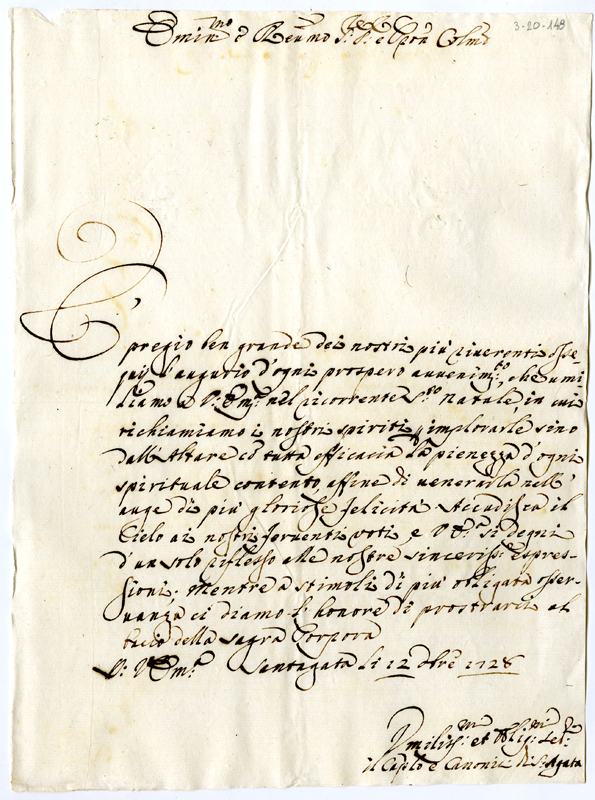 3-20-148
Emin:mo e Reu:mo S: P: e Pron Colmo
È pregio ben grande dei nostri più riuerenti osse-
quij l'augurio d'ogni prospero auuenim:to, che umi
liamo a V: Em:za nel ricorrente S:to natale, in cui
richiamiamo i nostri spiriti p implorarle sino
dall'Altare cõ tutta efficacia la pienezza d'ogni
spirituale contento affine di uenerarla nell'
auge di più gloriose felicità Accudisca il
Cielo ai nostri feruenti uoti e V Em:a si degni
d'un solo riflesso alle nostre sinceriss:e espres-
sioni. Mentre a stimoli di più obligata osser-
uanza ci diamo l'honore di prostrarci al
bacio della Sagra Porpora
Di V: Em:a Santagata li 12 Xbre 1728
Vmiliss:mi et Oblig:mi Ser:ri
il Capl:o e Canonici di S: Agata